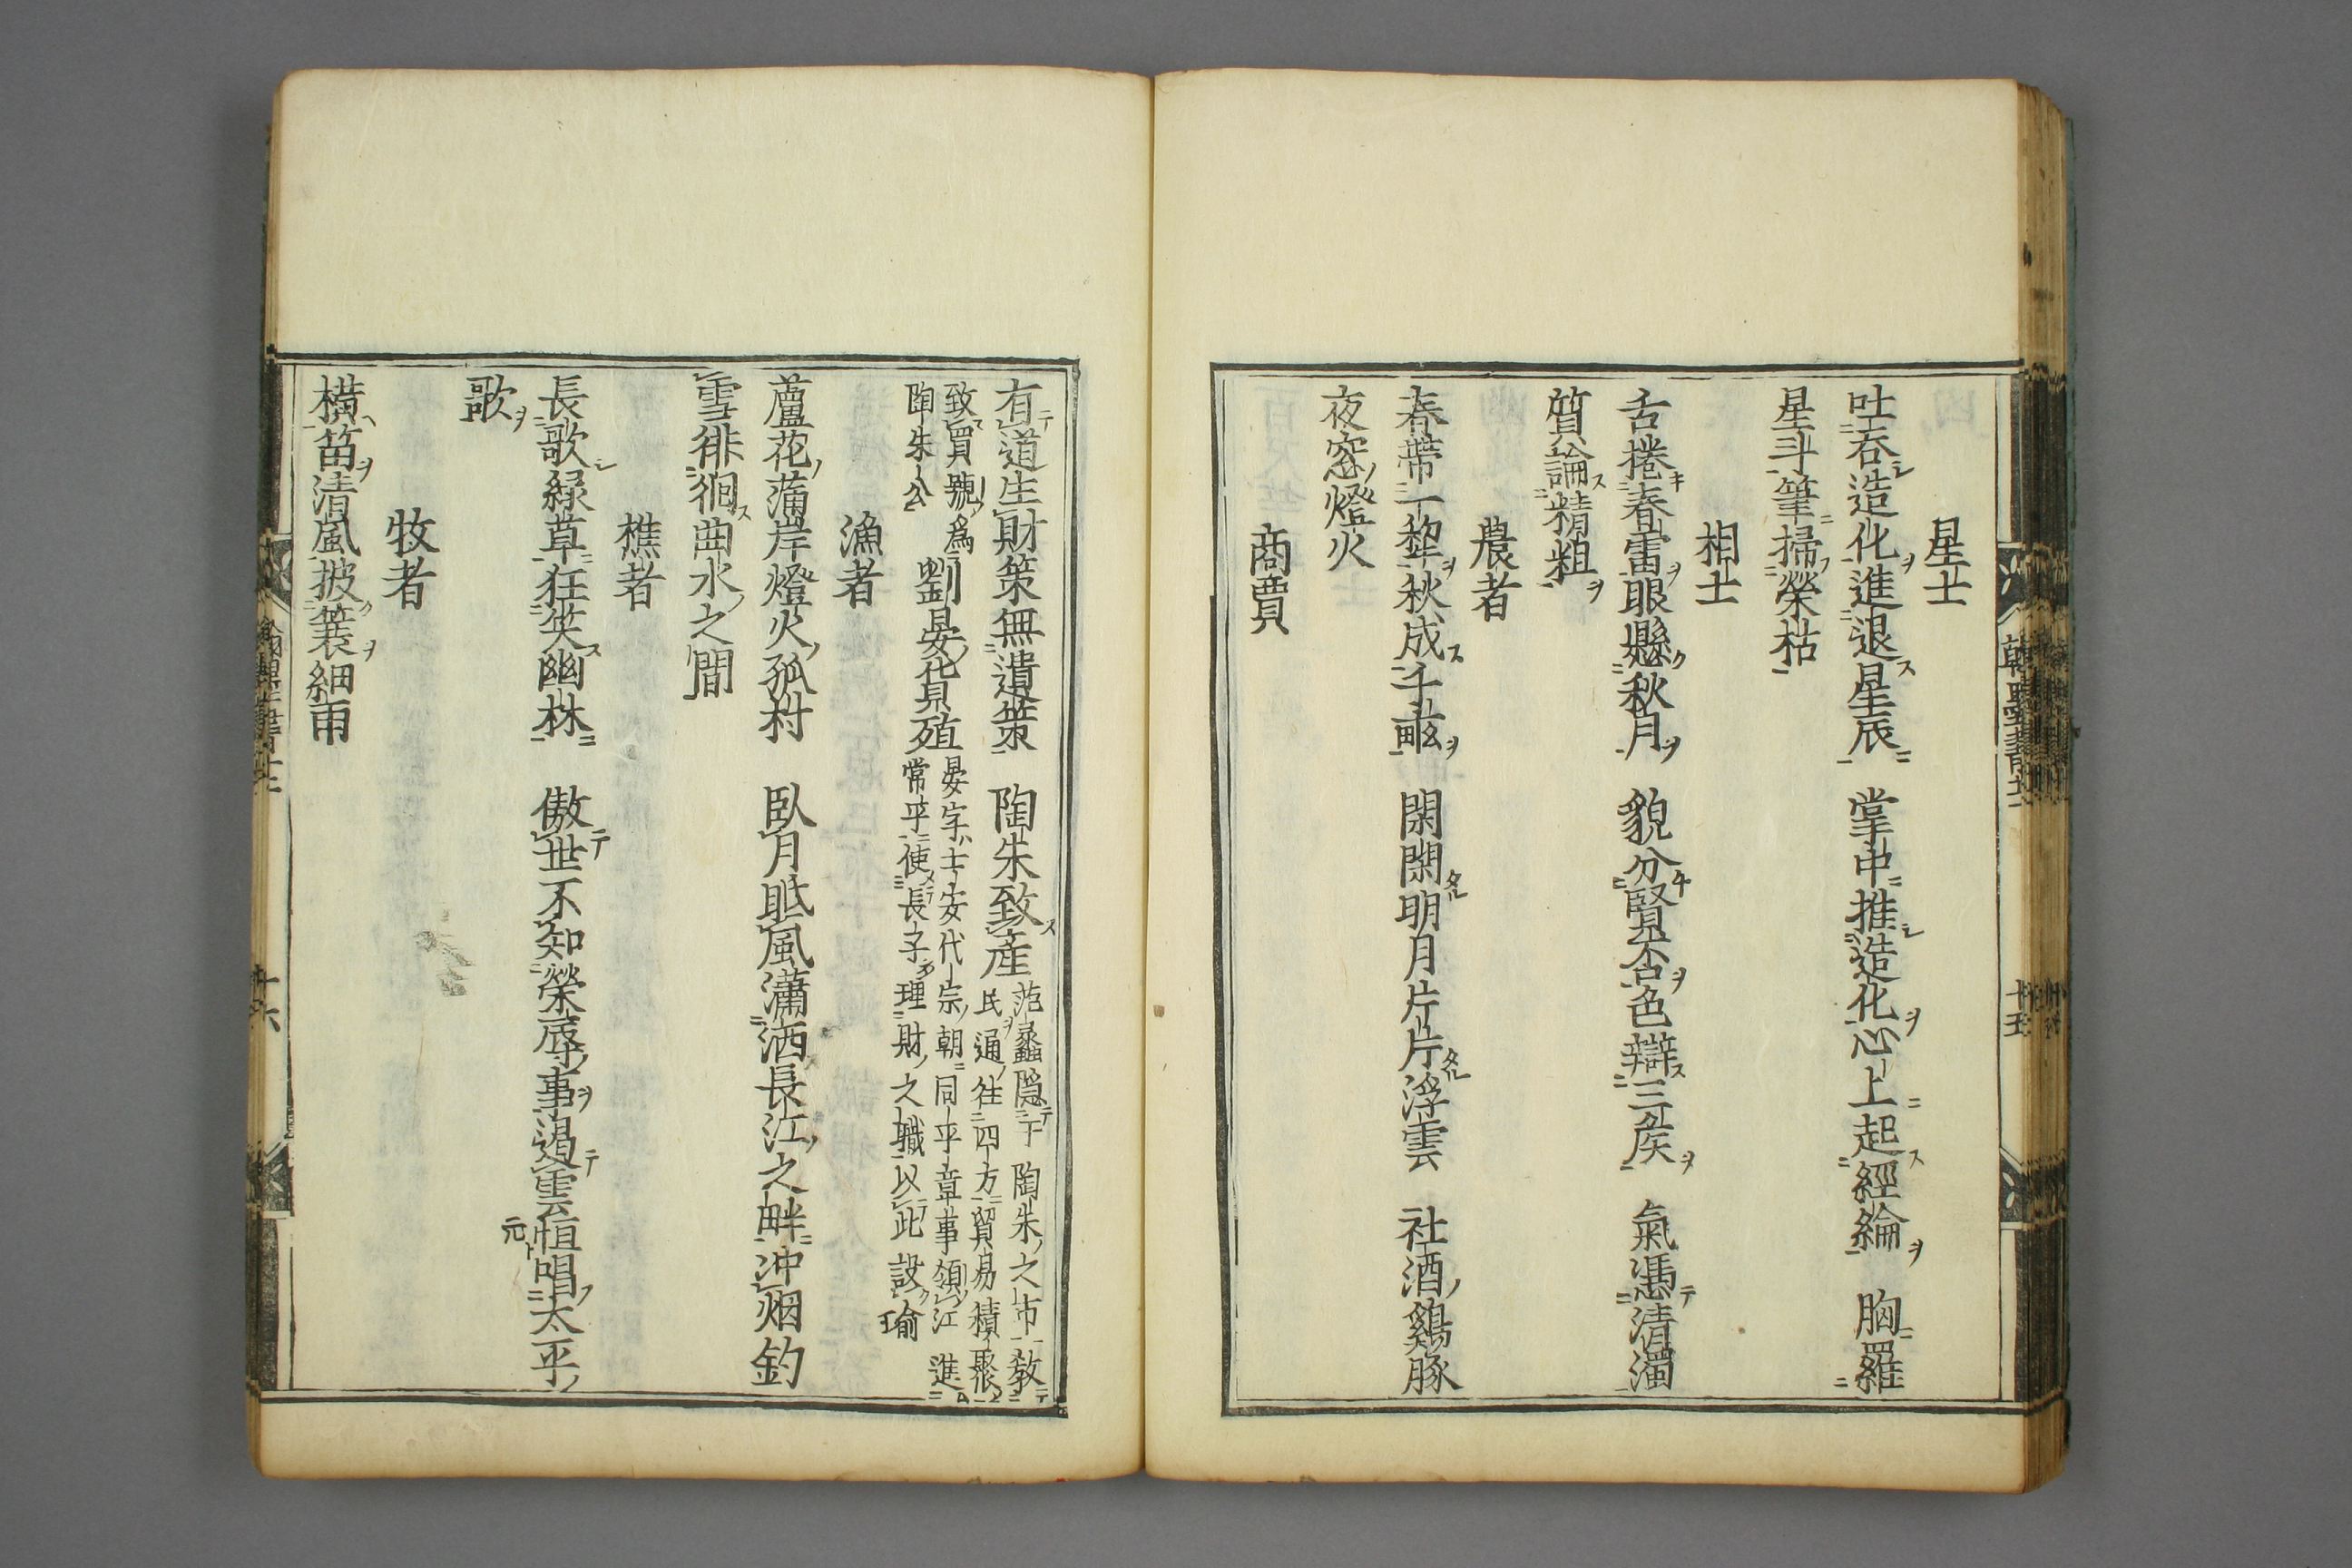 星士
吐呑造化進退星辰　掌中推造化心上起經綸　胸羅
星斗筆掃榮枯
相士
舌捲春雷眼懸秋月　貌分賢否色辯三矦　氣馮清濁
質論精粗
農者
春帶一犂秋成千畝　閑閑明月片片浮雲　社酒鷄豚
夜窓燈火
商賈
十五
有道生財策無遺策　陶朱致産 范蠡隠于陶朱之市敎
民通徃四方貿易積聚
致買號爲
陶朱公
劉晏貨殖 晏字士安代宗朝同平章事領江進
常平使長子理財之職以此設瑜
漁者
蘆花蒲岸燈火孤村　臥月眠風瀟洒長江之畔冲烟釣
雪徘徊曲水之間
樵者
長歌緑草狂笑幽林　傲世不知榮辱事遏雲恒唱太平
元
歌
牧者
横笛清風披簑細雨
十六